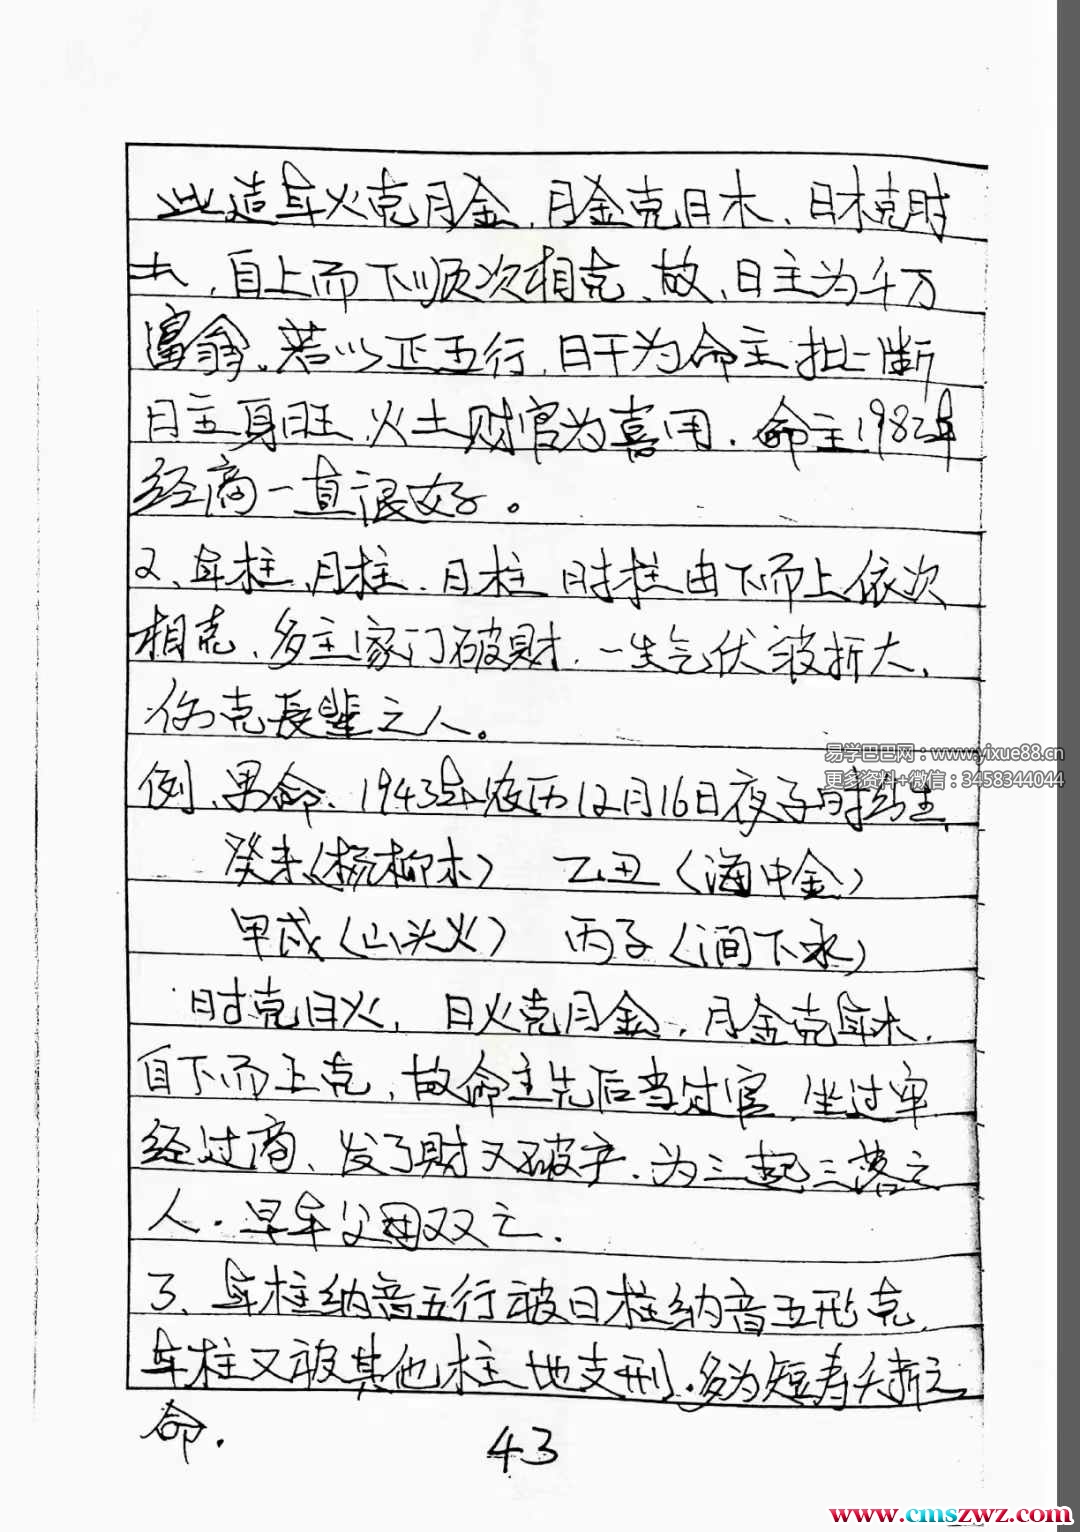 此造年火克月金，月金克日木、日木克时
土，自上而下顺次相克、故，日主为千万
富翁。若以正五行，日干为命主批断
日主身旺，火土财官为喜用．命主1982年
经商一直很好。
2、年柱、月柱．日柱 时柱由下而上依次
相克，多主家门破财．一生气伏波折大，
伤克長辈之人。
例、男命．1943年农历12月16日夜子时生
易学巴巴网：www.yixue88.cn
更多资料+微信：3458344044
癸未（杨柳木） 乙丑（海中金）
甲戌（山头火） 丙子（涧下水）
时克日火，日火克月金，月金克年木．
自下而上克，故命主先后当过官，坐过牢
经过商、发了財又破产．为三起三落之
人．早年父母双亡．
3、年柱纳音五行被日柱纳音五形克．
年柱又被其他柱地支刑．多为短寿夭折之
命．
43
www.cmszwz.com